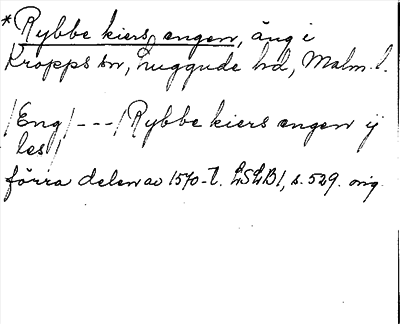 *Rybbe kiers engen, äng i
Kropps sn, Luggude hd, Malm. l.
/Eng/ - - - /Rybbe kiers engen ij
les/
förra delen av 1570-t. LSLB1, s. 529. orig.